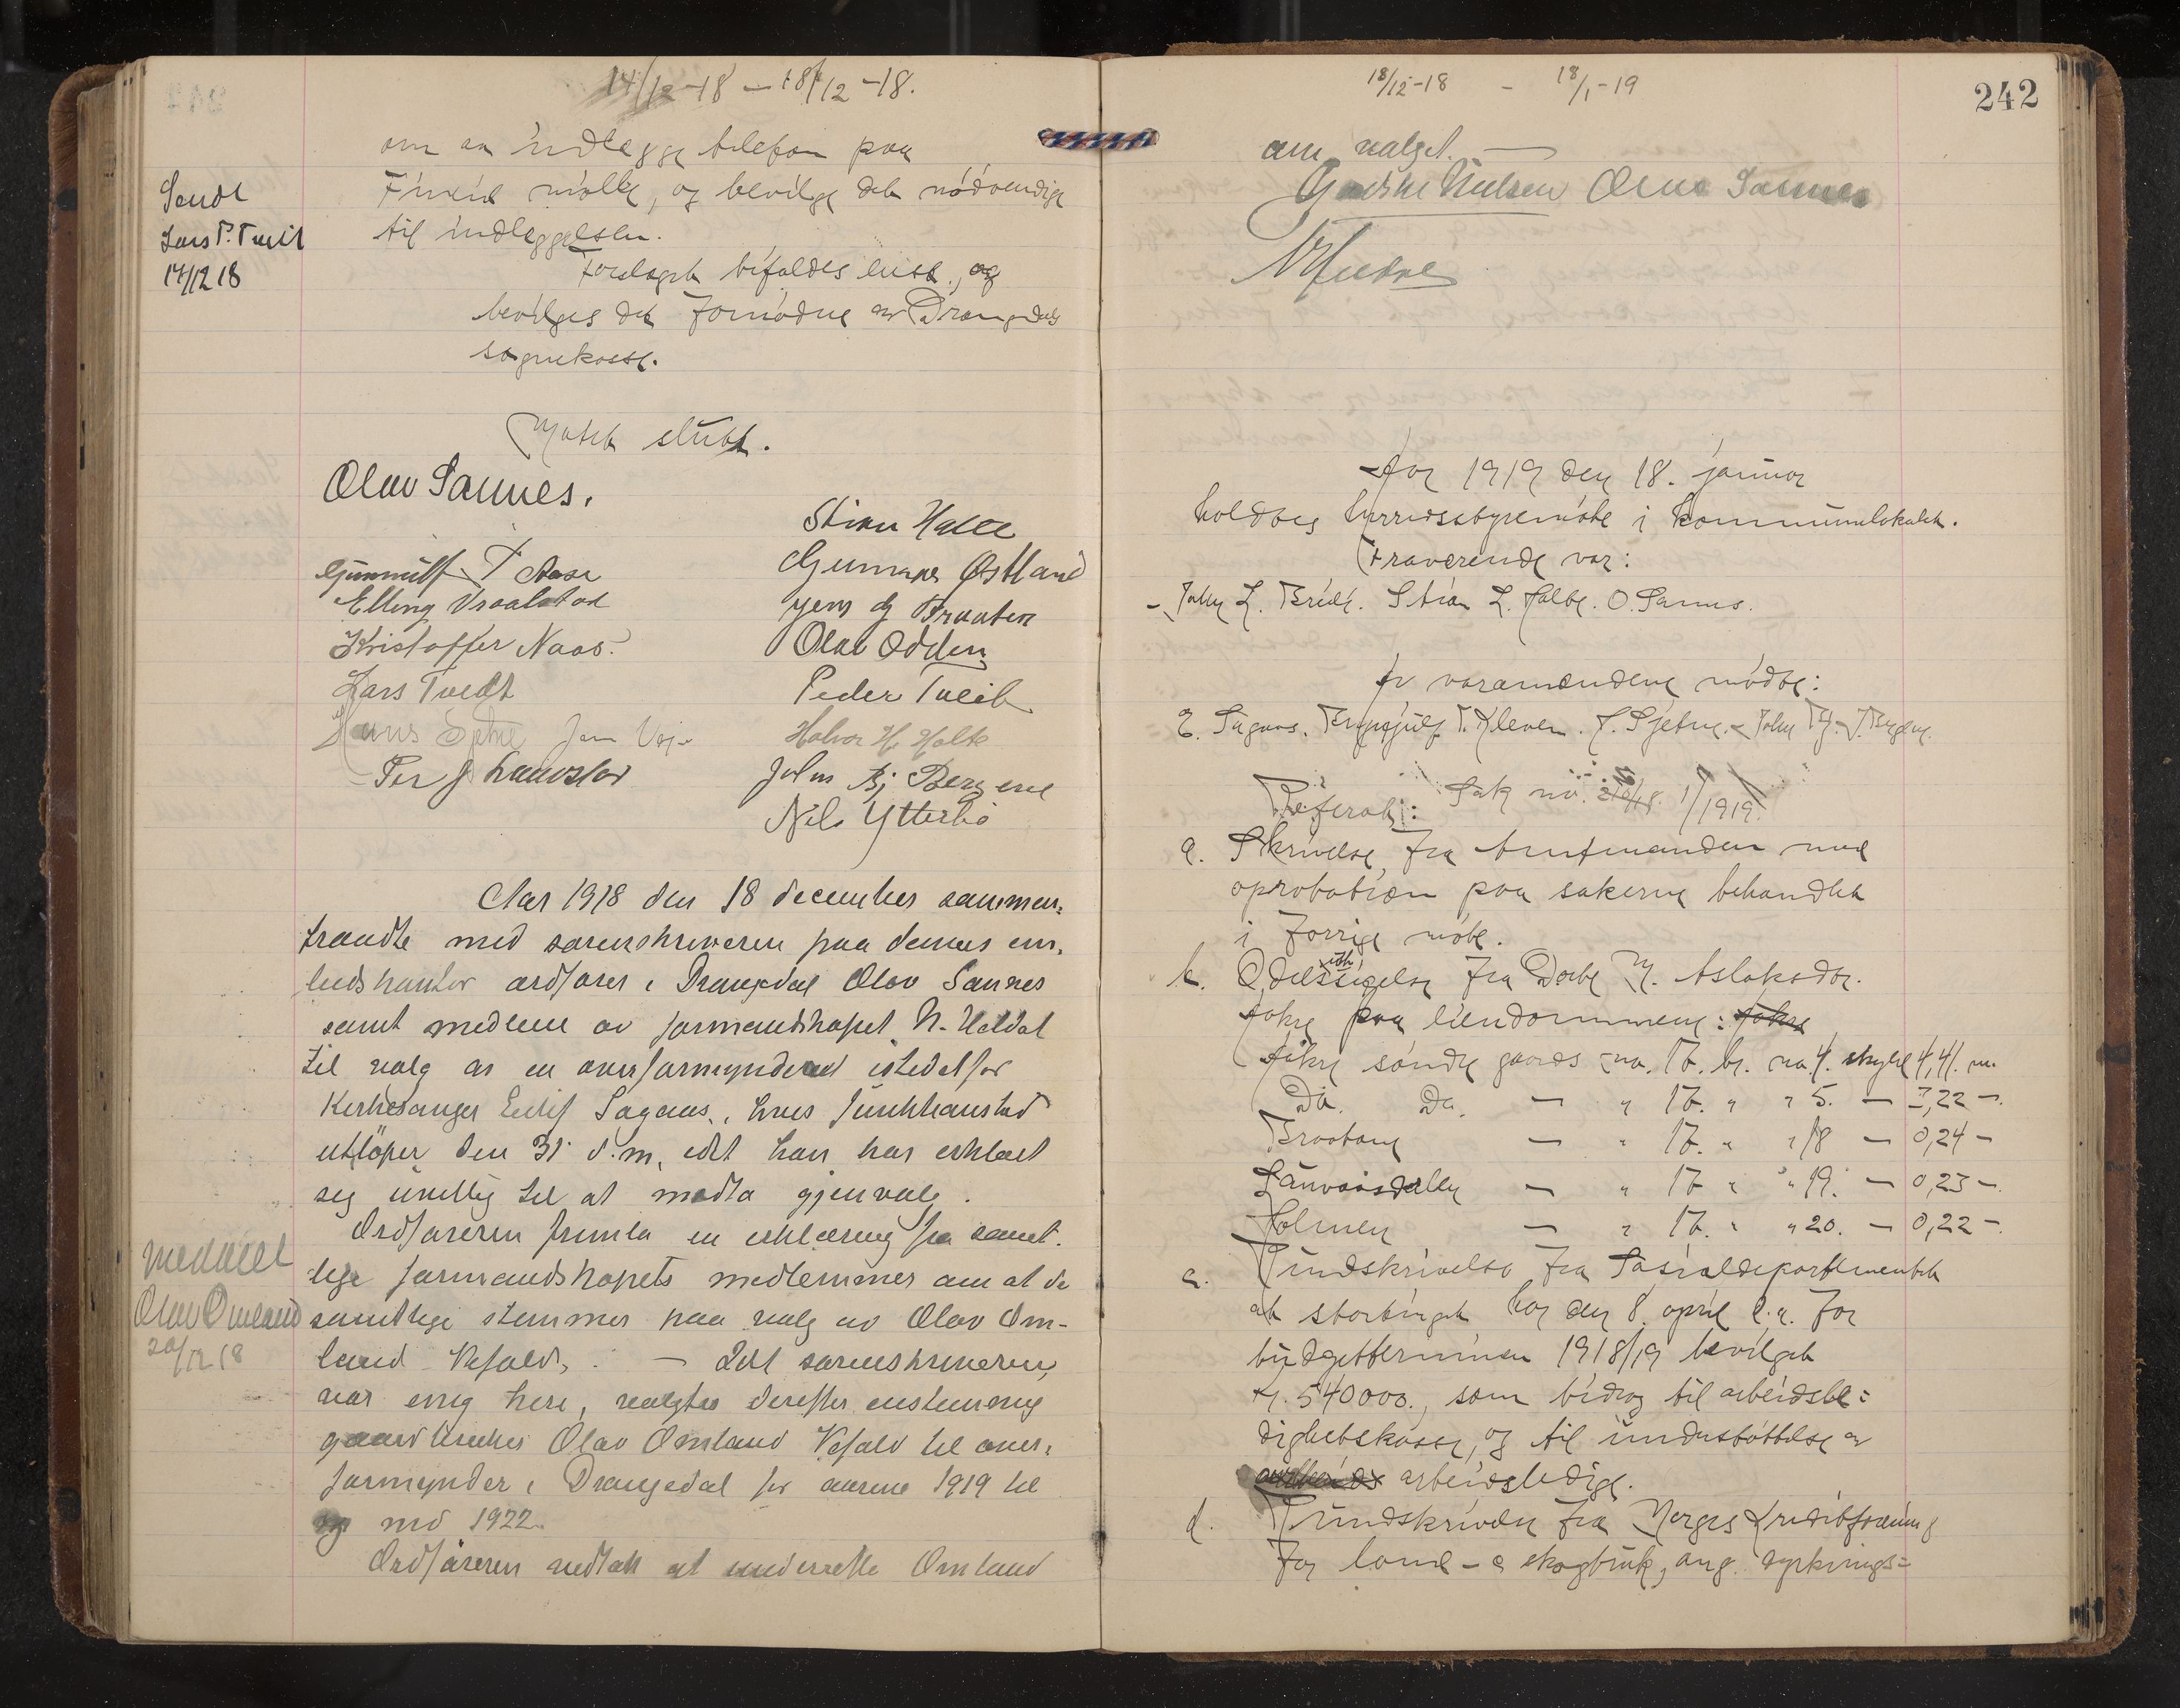 14/12-18 — 18/12-18.
Sendt
Lars P. Tveit
17/12 18
om aa indlegge telefon paa
mølle, og bevilge det nødvendige
til indleggelsen.
Forslaget bifaldes enst., og
bevilges det fornødne av Drangedals
sognekasse.
Møtet slutt.
Olav Sannes.
Stian Halle
Gunnulf T Aase
Gunnar Østland
Elling Vraalstad
Jens G Braaten
Kristoffer Naas.
Olav Odden
Lars Tvedt
Peder Tveit
Hans
Halvor H. Holte
Per J Lauvstad
John Bj Bergene
Nils Ytterbø
Aar 1918 den 18 december sammen-
traadte med sorenskriveren paa dennes em-
bedskontor ordfører i Drangedal Olav Sannes
samt medlem av formandskapet N. Haldal
til valg av en overformynder istedetfor
Kirkesanger Eilif Sagaas, hvis funktionstid
utløper den 31 d.m. idet han har erklært
seg uvillig til at motta gjenvalg.
Ordføreren fremla en erklæring fra samt-
lige formandskapets medlemmer om at de
samtlige stemmer paa valg av Olav Om-
land Vefald, . — Idet sorenskriveren
var enig heri, valgtes derefter enstemmig
gaardbruker Olav Omland Vefald til over-
formynder i Drangedal for aarene 1919 til
og med 1922.
Ordføreren vedtok at underrette Omland
meddelt
Olav Omland
20/12 18
18/12-18 - 18/1-19
242
om valget. —
Nielsen Olav Sannes
Aar 1919 den 18. januar
holdtes herredsstyremøte i kommunelokalet.
Fraværende var:
John L. Stian L. Halle. O. Sannes.
Av varamændene møtte:
E. Sagaas. Brynjulf T. Kleven.
Referat: Sak nr. 1/1919
a. Skrivelse fra Amtmanden med
aprobation paa sakerne behandlet
i forrige møte.
b. Odelssigelse fra M. Aslaksdtr.
Tokke paa eiendommene: Tokke
Tokke søndre gaards no. 17. br. no. 4. skyld 4,41. m.
Do. Do. — " 17. " " 5. — 3,22 —.
Braatane — " 17. " " 18 — 0,24 —
— " 17 " " 19. — 0,23 —.
Holmen — " 17. " " 20. — 0,22 —.
c. Rundskrivelse fra Socialdepartementet
at stortinget har den 8. april f.a. for
budgetterminen 1918/19 bevilget
kr. 540000., som bidrag til arbeidsle=
dighetskasse, og til understøttelse av
arbeidsledige.
d. Rundskrivelse fra Norges Kreditforening
for land- & skogbruk, ang. dyrknings=